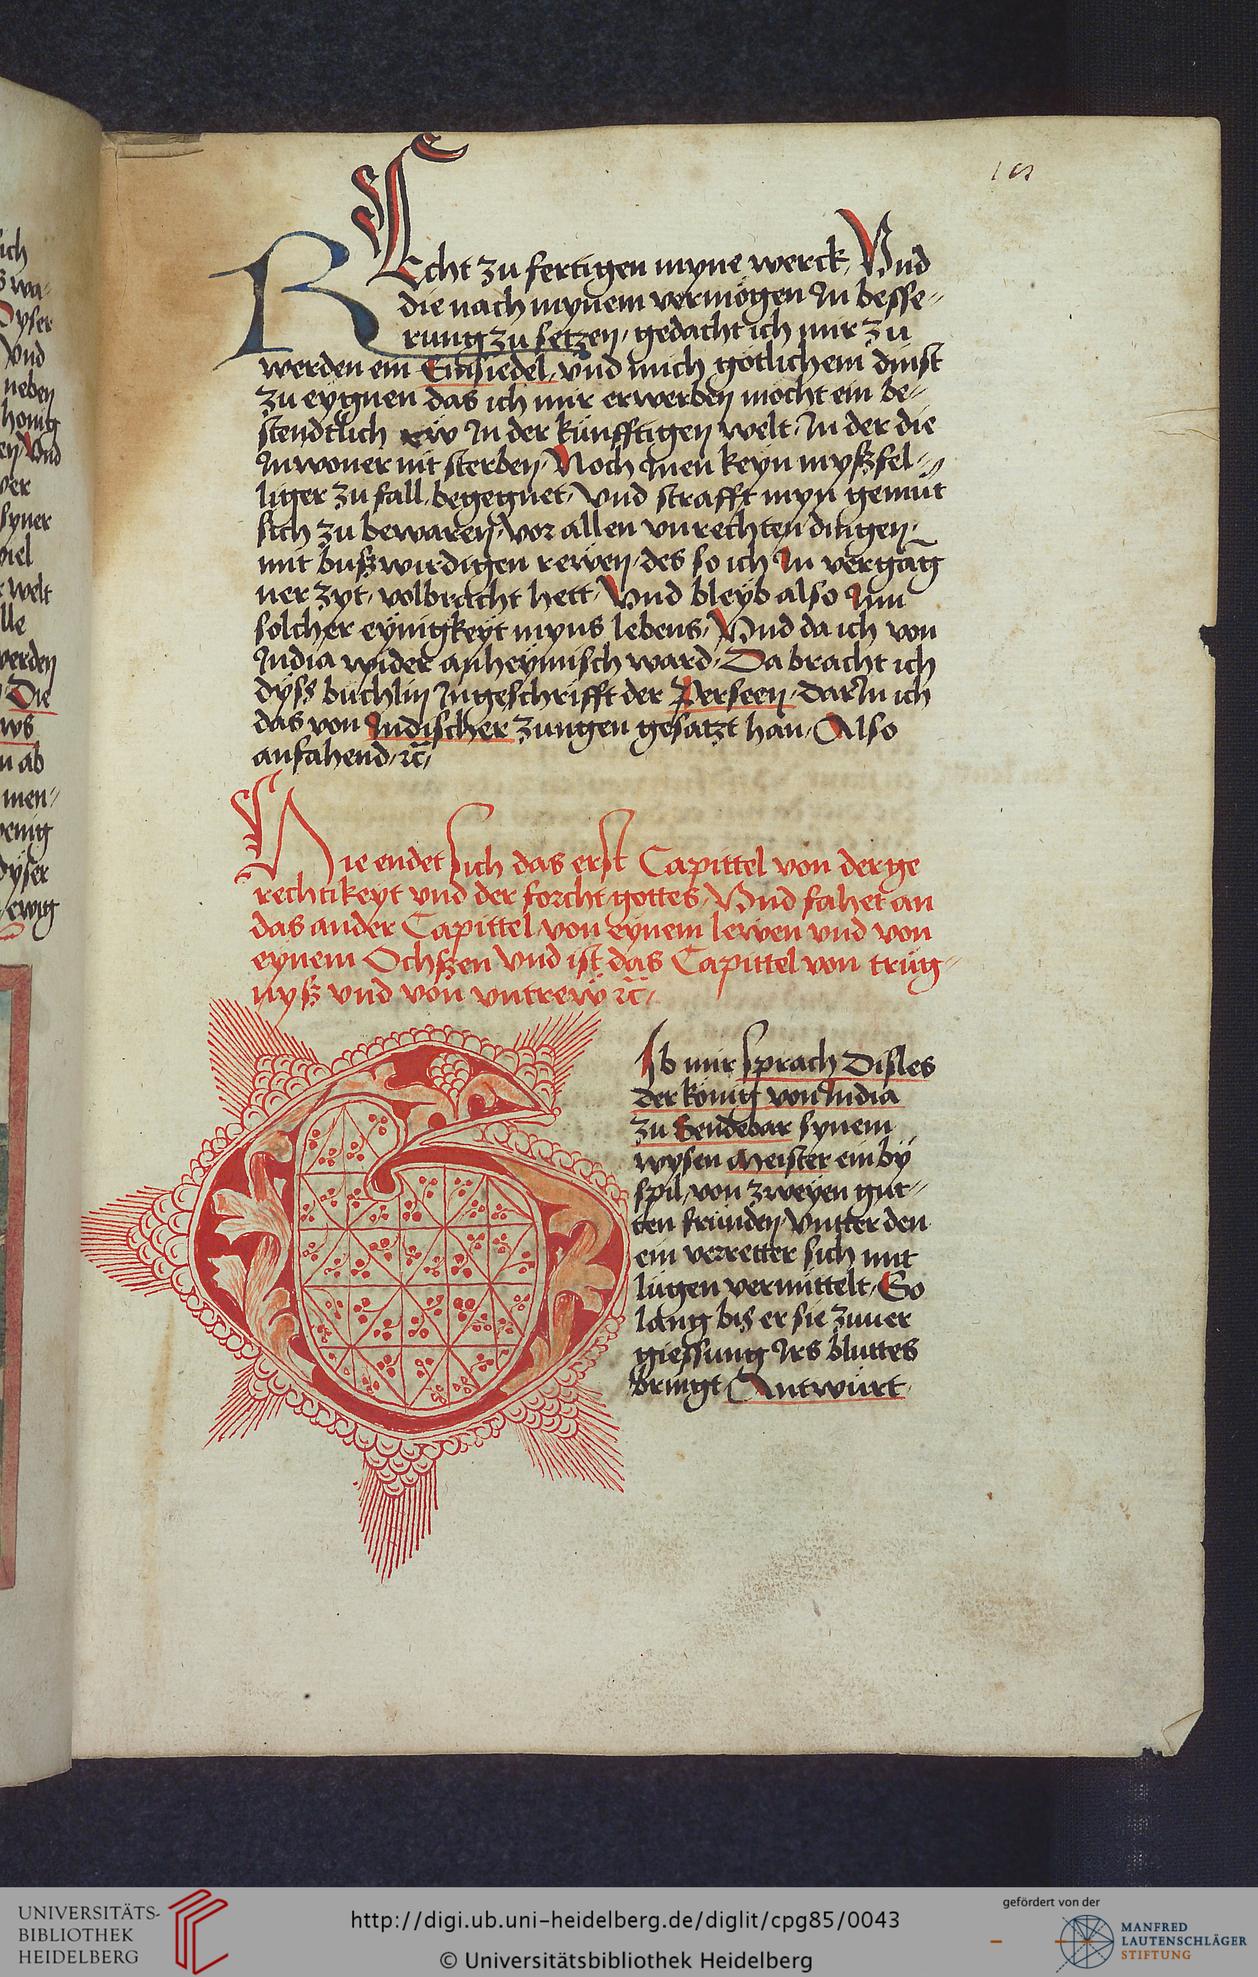 19
REcht zu fertigen myne werck / Vnd
die nach mynem vermögen Jn besse=
rung zu setzen / gedacht ich mir zu
werden ein Einsiedel / vnd mich götlichem dinst
zu eygnen das ich mir erwerben möcht ein be=
stendtlich rẃ Jn der künfftigen welt / Jn der die
Jnwoner nit sterben / Noch Jnen keyn myßfel=
liger zu fall begegnet / Vnd strafft myn gemüt
sich zu bewaren / vor allen vnrechten dingen /
mit buß wirdigen rewen / des so ich Jn vergāg
ner zyt / volbracht hett / Vnd bleyb also Jnn
solcher eynigkeyt myns lebens / Vnd da ich von
Jndia wider anheymisch ward / Da bracht ich
dyss büchlin Jngeschrifft der Perseen / darJn ich
das von Jndischer zungen gesatzt han / Also
anfahend / rc̄ /
Hie endet sich das erst Capittel von der ge
rechtikeyt vnd der forcht gottes / Vnd fahet an
das ander Capittel von eynem lewen vnd von
eynem Ochßen Vnd ist das Capittel von trüg=
nyß vnd von vntreẅ rc̄ /
GJb mir sprach Disles
der könig von Jndia
zu Sendebar synem
wysen Meister ein by
spil / von zweyen gut=
ten fründen / Vntter den
ein verretter sich mit
lügen vermittelt / So
lang bis er sie zuuer
giessung Jrs bluttes
bringt / Antwürt
ich
wa=
Dyser
Vnd
neben
honig
en / Vnd
syner
welt
werden
Die
ab
men=
wenig
dyser
ewig
UNIVERSITÄTS-
BIBLIOTHEK
HEIDELBERG
http://digi.ub.uni-heidelberg.de/diglit/cpg85/0043
© Universitätsbibliothek Heidelberg
gefördert von der
MANFRED
LAUTENSCHLÄGER
STIFTUNG